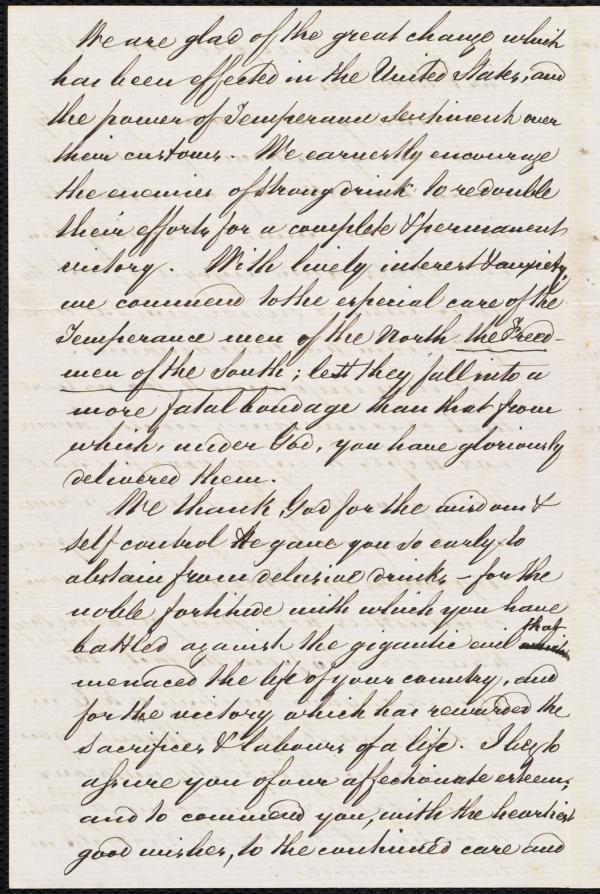 We are glad of the great change which
has been effected in the United States, and
the power of Temperance Sentiment over
their customs. We earnestly encourage
the enemies of strong drink to redouble
their efforts for a complete & permanent
victory. With lively interest & anxiety,
we commend to the especial care of the
Temperance men of the North the Freed-
men of the South; lest they fall into a
more fatal bondage than that from
which, under God, you have gloriously
delivered them.
We thank God for the wisdom &
self control He gave you so early to
abstain from delusive drinks - for the
noble fortitude with which you have
battled against the gigantic evil that which
menaced the life of your country, and
for the victory which has rewarded the
sacrifices & labours of a life. I beg to
assure you of our affectionate esteem,
and to commend you, with the heartiest
good wishes, to the continued care and